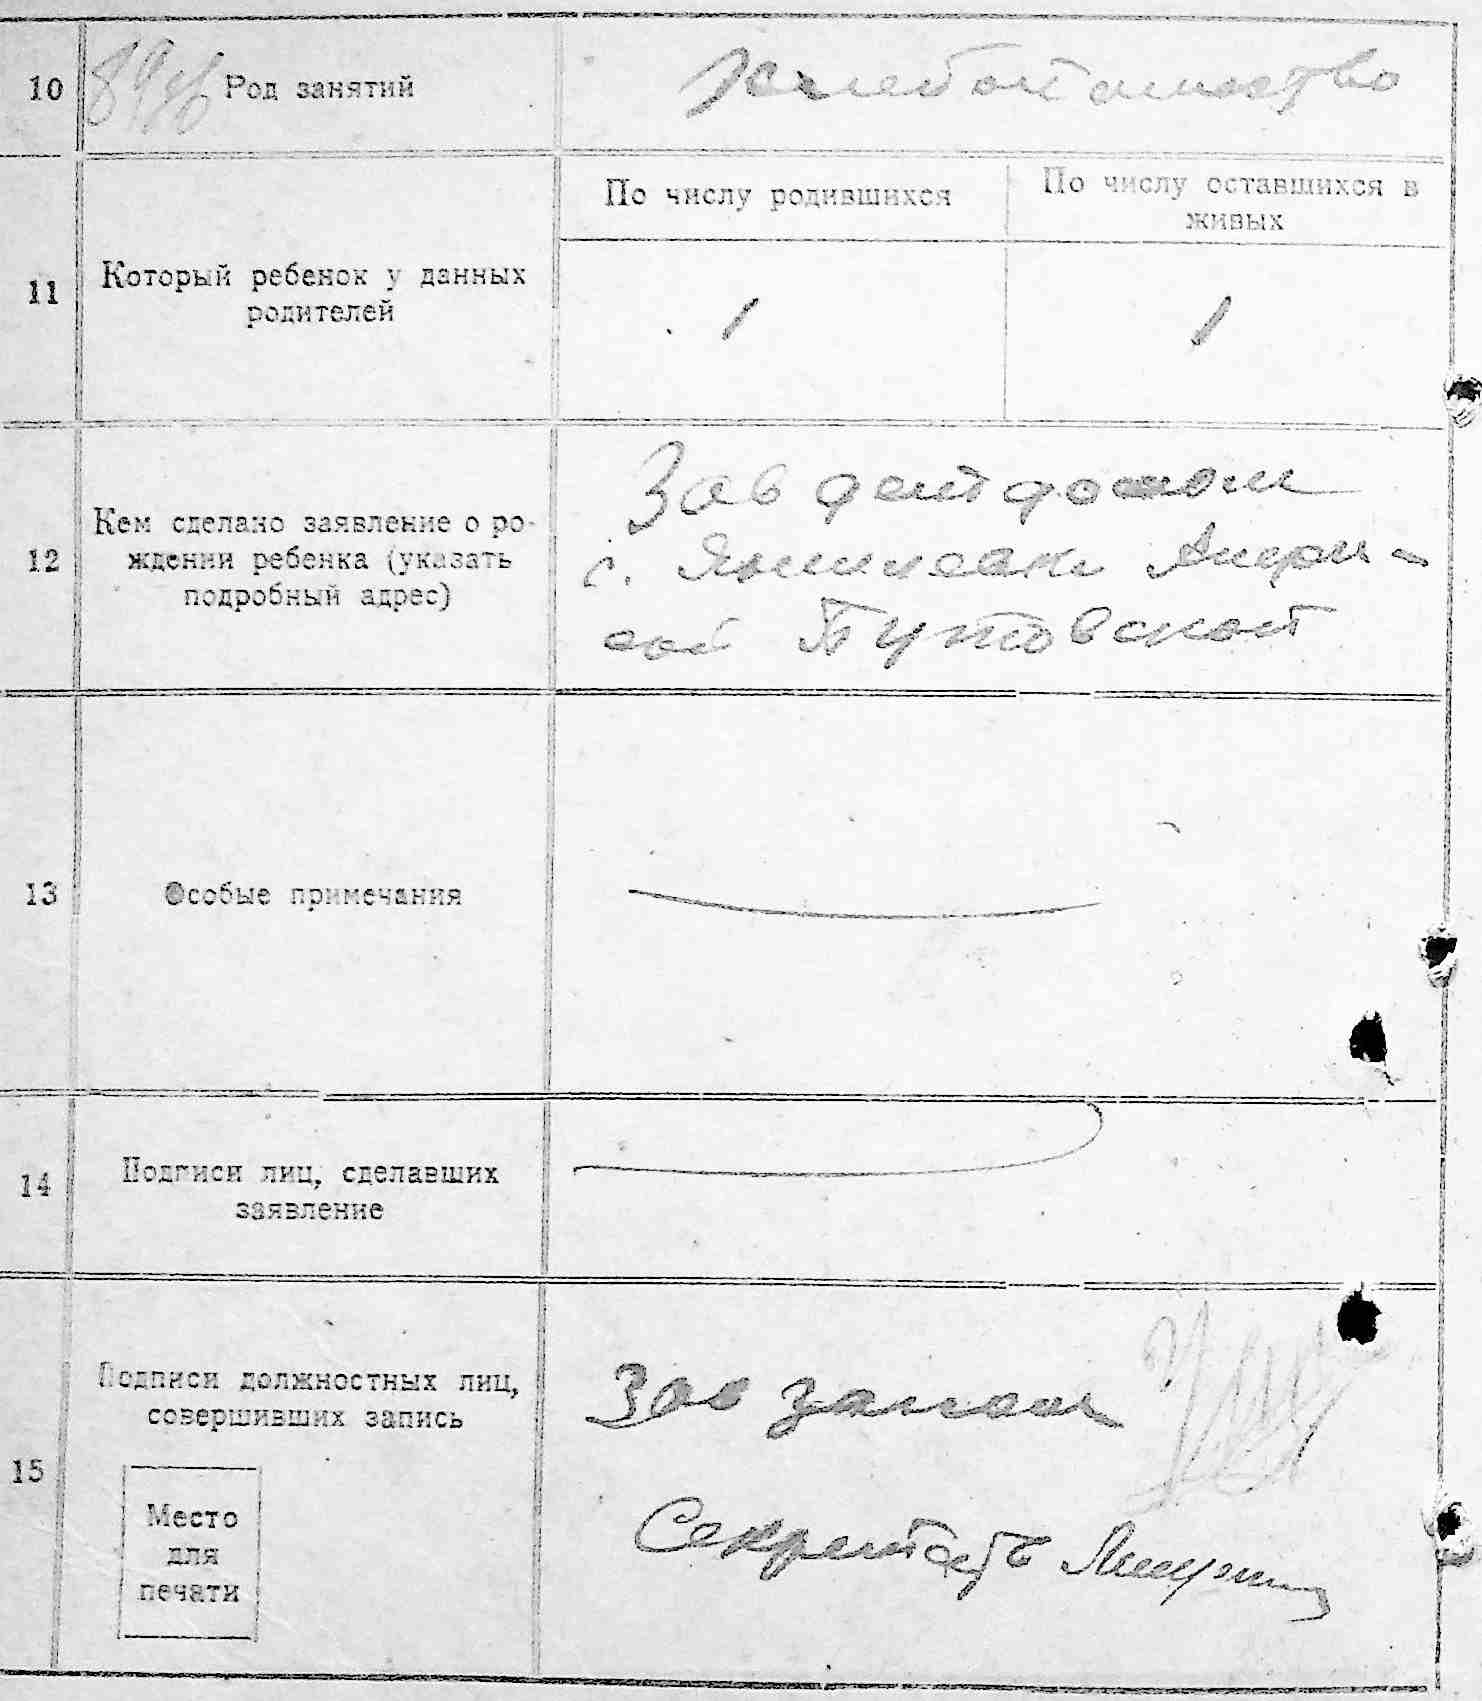 10 Род занятий Хлебопашество
По числу родившихся По числу оставшихся в
живых
11 Который ребенок у данных
родителей
1 1
12 Кем сделано заявление о ро-
ждении ребенка (указать
подробный адрес)
Зав детдомом
с.
Путовской
13 Особые примечания
14 Подписи лиц, сделавших
заявление
15 Подписи должностных лиц,
совершивших запись
Зав загсом
Секретарь
Место
для
печати